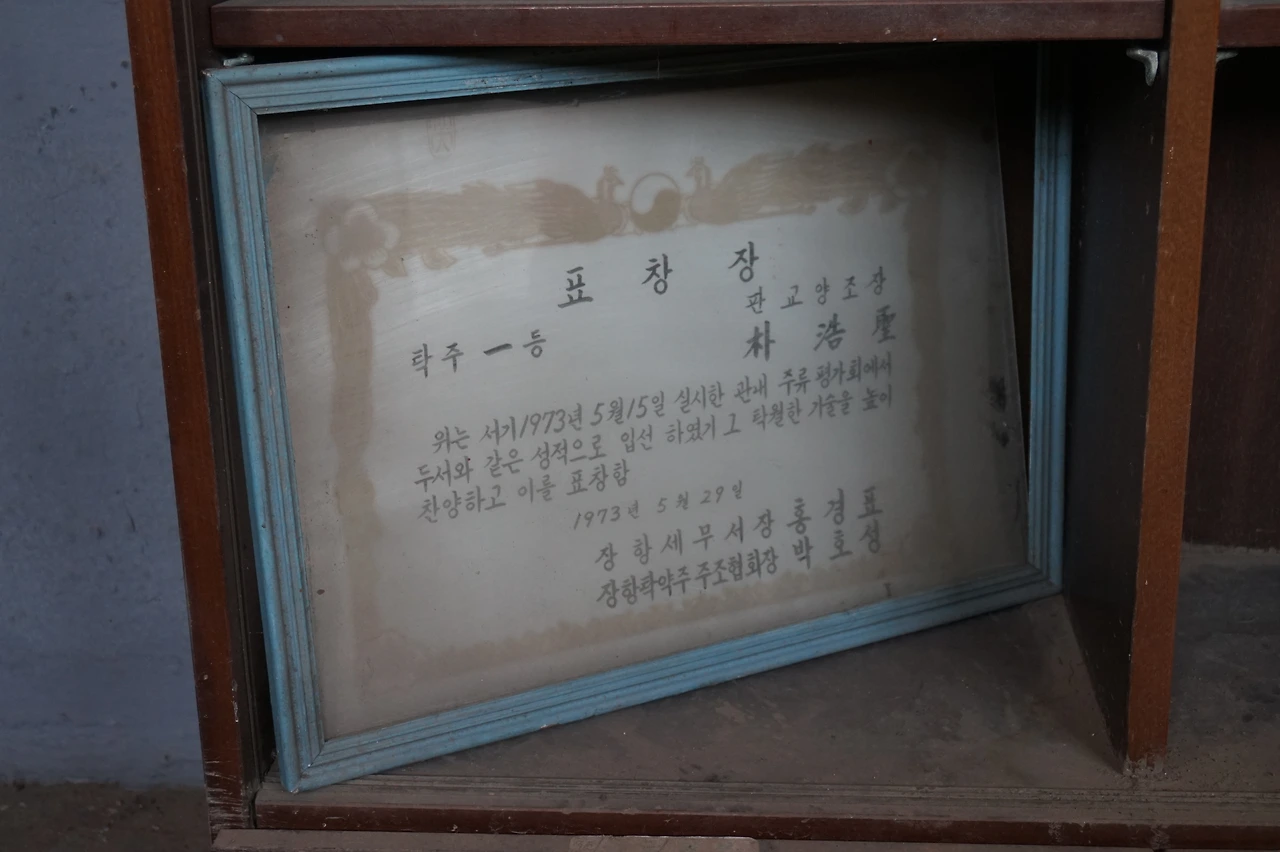 표 창 장
판 교 양 조 장
탁주 一 등
朴 浩 聖
위는 서기 1973년 5월 15일 실시한 관내 주류 평가회에서
두서와 같은 성적으로 입선 하였기 그 탁월한 기술을 높이
찬양하고 이를 표창함
1973년 5월 29일
장 항 세 무 서 장 홍 경 표
장항탁약주 주조협회장 박 호 성